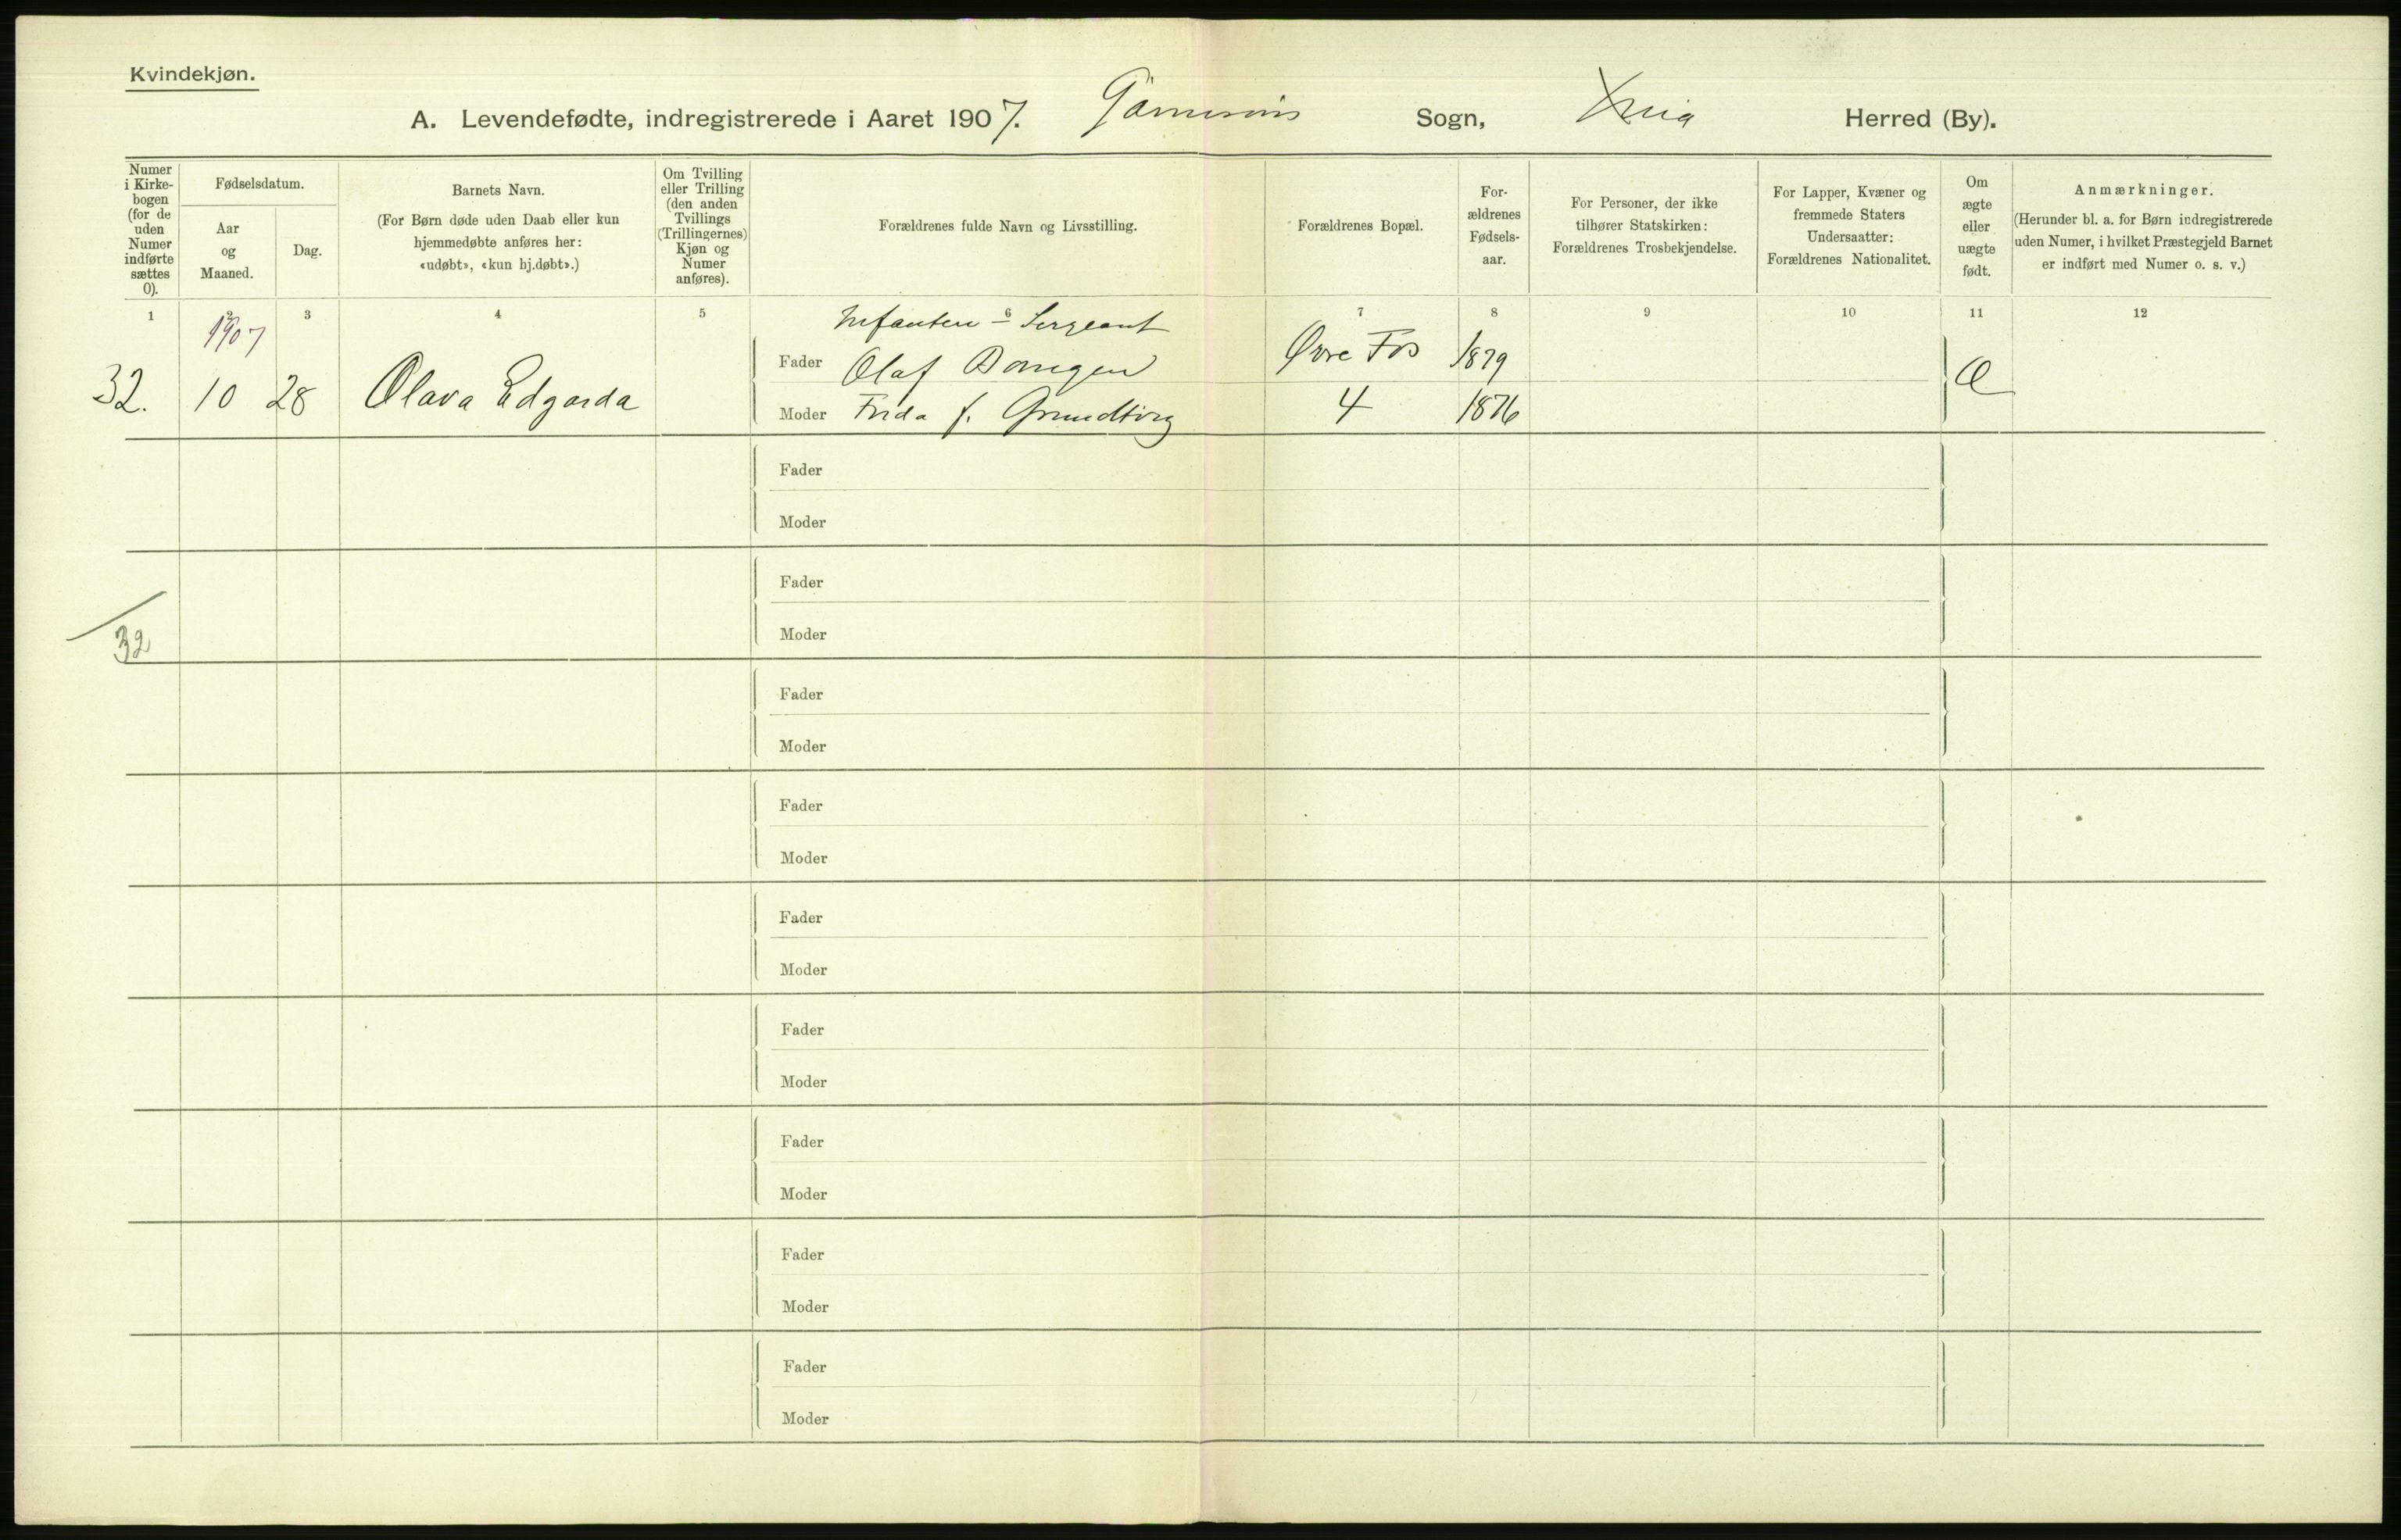 Kvindekjøn.
A. Levendefødte, indregistrerede i Aaret 1907. Garnisons Sogn, Xnia Herred (By).
Numer
i Kirke-
bogen
(for de
uden
Numer
indførte
sættes
0).
Fødselsdatum.
Aar
og
Maaned.
Dag.
Barnets Navn.
(For Børn døde uden Daab eller kun
hjemmedøbte anføres her:
«udøbt», «kun hj.døbt».)
Om Tvilling
eller Trilling
(den anden
Tvillings
(Trillingernes)
Kjøn og
Numer
anføres).
Forældrenes fulde Navn og Livsstilling.
Forældrenes Bopæl.
For-
ældrenes
Fødsels-
aar.
For Personer, der ikke
tilhører Statskirken:
Forældrenes Trosbekjendelse.
For Lapper, Kvæner og
fremmede Staters
Undersaatter:
Forældrenes Nationalitet.
Om
ægte
eller
uægte
født.
Anmærkninger.
(Herunder bl. a. for Børn indregistrerede
uden Numer, i hvilket Præstegjeld Barnet
er indført med Numer o. s. v.)
1 2 3 4 5 6 7 8 9 10 11 12
1907
Infanteri - Sergeant
32. 10 28 Olava Edgarda
Fader Olaf Øvre Fos 1879
Moder Frida f. Grundtvig 4 1876
Æ
Fader
Moder
Fader
Moder
32
Fader
Moder
Fader
Moder
Fader
Moder
Fader
Moder
Fader
Moder
Fader
Moder
Fader
Moder